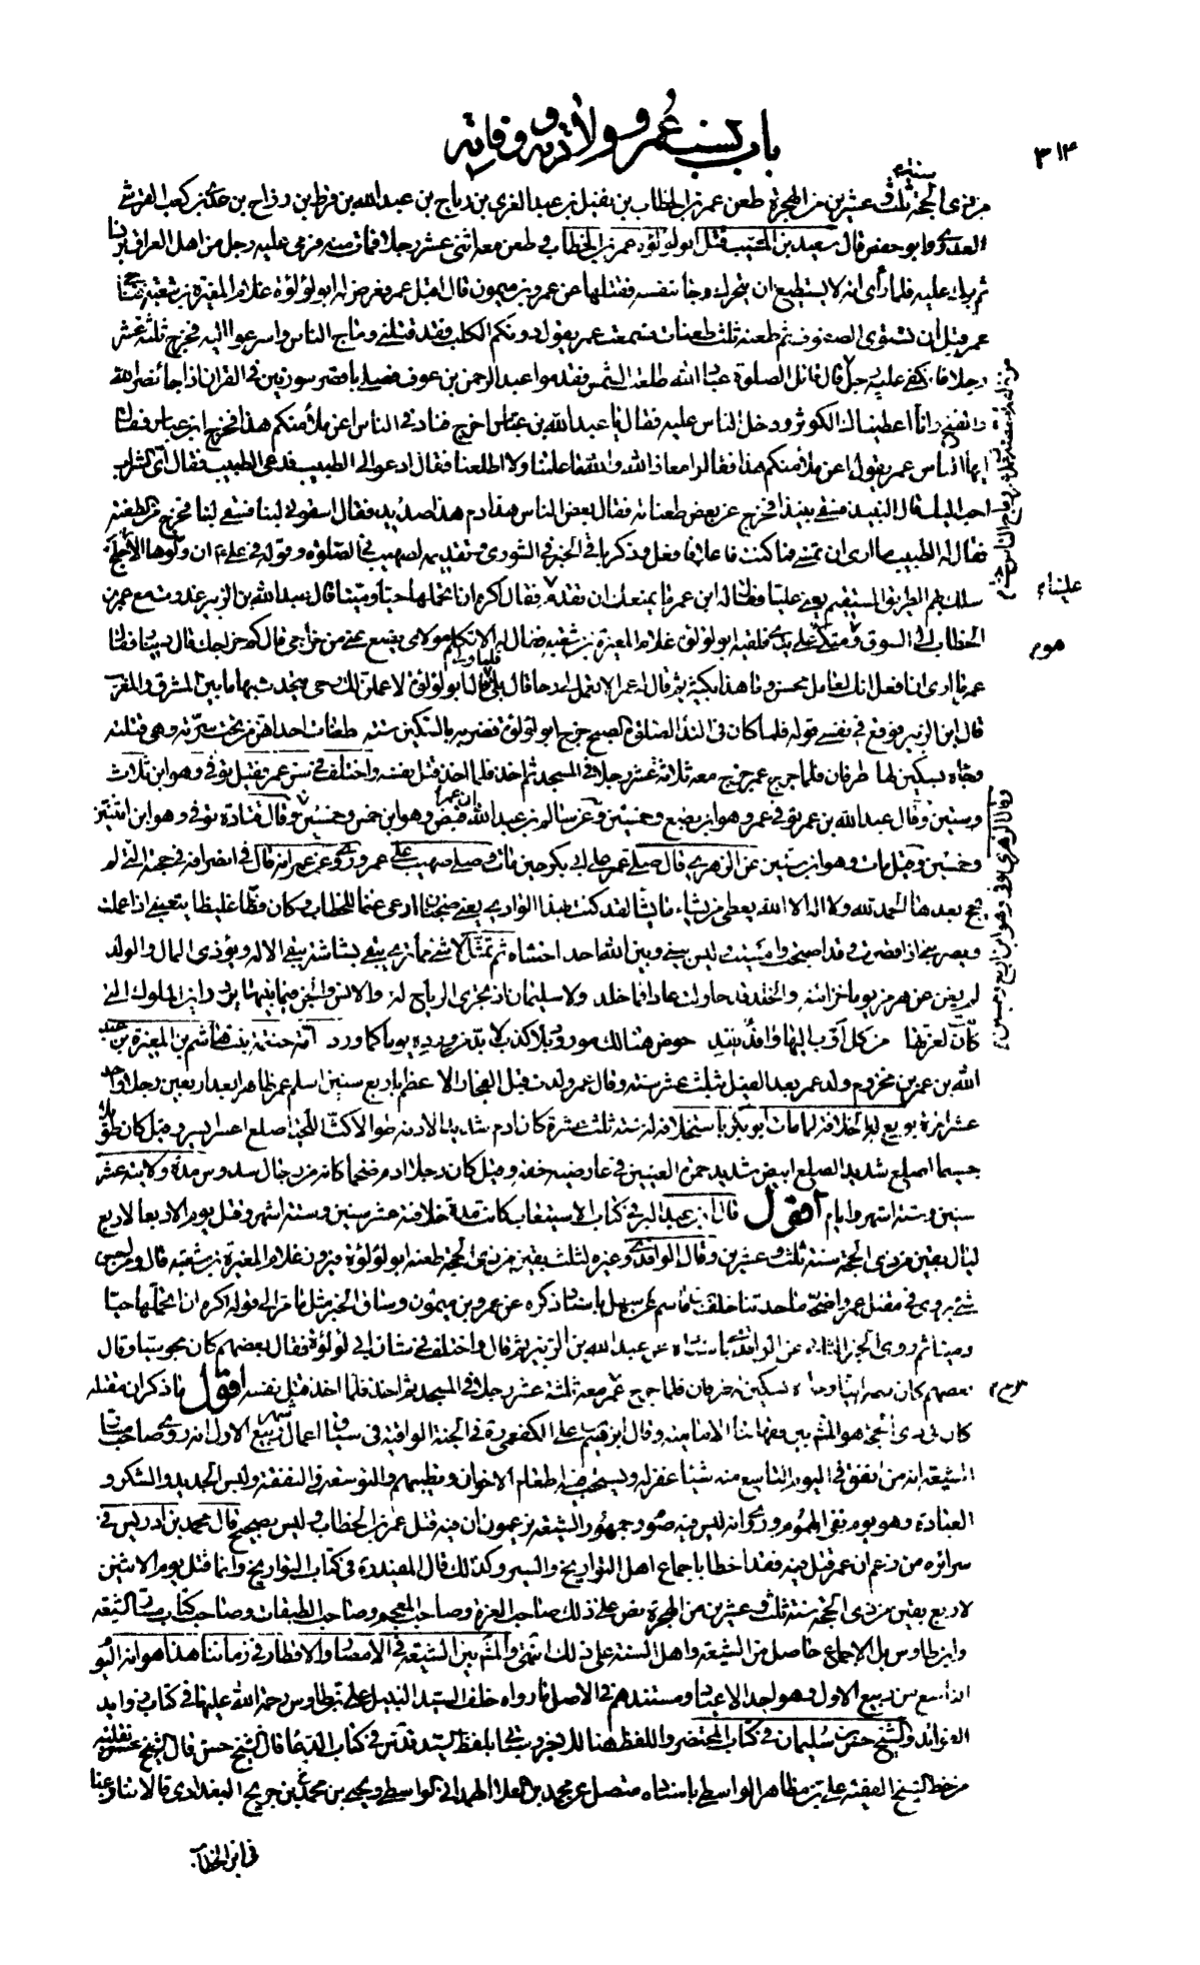 باب نسب عمر وولادته ووفاته
٣١٤
من ذي الحجة سنة ثلث وعشرين من الهجرة طعن عمر بن الخطاب بن نفيل بن عبد العزى بن رياح بن عبد الله بن قرط بن رزاح بن عدي بن كعب القرشي
العدوي وابو حفص قال سعيد بن المسيب قتل ابو لؤلؤة عمر بن الخطاب وطعن معه اثنى عشر رجلا فمات منهم فرمى عليه رجل من اهل العراق برنسا
ثم برك عليه فلما رأى انه لا يستطيع ان يتحرك وجا نفسه فقتلها عن عمرو بن ميمون قال اقبل عمر فعرض له ابو لؤلؤة غلام المغيرة بن شعبة
عمر قبل ان تستوى الصفوف ثم طعنه ثلث طعنات فسمعت عمر يقول دونكم الكلب فقد قتلني وماج الناس واسرعوا اليه فخرج ثلثة عشر
رجلا قال قائل الصلوة عباد الله طلعت الشمس فقدموا عبد الرحمن بن عوف فصلى باقصر سورتين في القران اذا جاء نصر الله
والفتح وانا اعطيناك الكوثر ودخل الناس عليه فقال يا عبد الله بن عباس اخرج فناد في الناس اعن ملأ منكم هذا فخرج ابن عباس فقال
ايها الناس عمر يقول اعن ملأ منكم هذا فقالوا معاذ الله والله ما علمنا ولا اطلعنا فقال ادعوا لي الطبيب فدعى الطبيب فقال اي الشراب
احب اليك قال النبيذ فسقى نبيذا فخرج من بعض طعناته فقال بعض الناس هذا دم هذا صديد فقال اسقوني لبنا فسقى لبنا فخرج من الطعنة
فقال له الطبيب ما ارى ان تمسى فما كنت فاعلا فافعل وذكر باقي الخبر في الشورى وتقديمه لصهيب في الصلوة وقوله في علي ان ولوها الاجلح
سلك بهم الطريق المستقيم يعني عليا فقال له ابن عمر ما يمنعك ان تقدمه فقال اكره ان اتحملها حيا وميتا قال عبد الله بن الزبير غدوت مع عمر بن
الخطاب الى السوق وهو متكئ على يدي فلقيه ابو لؤلؤة غلام المغيرة بن شعبة فقال له الا تكلم مولاي يضع عني من خراجي قال كم خراجك قال دينار فقال
عمر ما ارى ان افعل انك لعامل محسن وما هذا بكثير ثم قال له عمر الا تعمل لي رحا قال بلى فلما ولى قال ابو لؤلؤة لاعملن لك رحى يتحدث بها ما بين المشرق والمغرب
قال ابن الزبير فوقع في نفسي قوله فلما كان في النداء لصلوة الصبح خرج ابو لؤلؤة فضربه بالسكين ستة طعنات احداهن من تحت سرته وهي قتلته
وجاء بسكين لها طرفان فلما جرح عمر جرح معه ثلاثة عشر رجلا في المسجد ثم اخذ فلما اخذ قتل نفسه واختلف في سن عمر فقيل توفي وهو ابن ثلاث
وستين وقال عبد الله بن عمر توفي عمر وهو ابن بضع وخمسين وعن سالم بن عبد الله ان عمر قبض وهو ابن خمس وخمسين وقال قتادة توفي وهو ابن اثنتين
وخمسين وقيل مات وهو ابن ستين عن الزهري قال صلى عمر على ابي بكر حين مات وصلى صهيب على عمر وروي عن عمر انه قال في انصرافه في حجته التي لم
يحج بعدها الحمد لله ولا اله الا الله يعطى من يشاء ما يشاء لقد كنت بهذا الوادي يعني ضجنان ارعى غنما للخطاب وكان فظا غليظا يتعبني اذا عملت
ويضربني اذا قصرت وقد اصبحت وامسيت وليس بيني وبين الله احد اخشاه ثم تمثل لا شئ مما ترى يبقى بشاشته يبقى الاله ويودى المال والولد
لم يغن عن هرمز يوما خزائنه والخلد قد حاولت عاد فما خلدوا ولا سليمان اذ تجرى الرياح له والانس والجن فيما بينها يرد واين الملوك التي
كانت لعزتها من كل اوب اليها وافد يفد حوض هنالك مورود بلا كذب لا بد من ورده يوما كما ورد امه حنتمة بنت هاشم بن المغيرة بن عبد
الله بن عمر بن مخزوم ولد عمر بعد الفيل بثلث عشر سنة وقال عمر ولدت قبل الفجار الاعظم باربع سنين اسلم عمر ظاهرا بعد اربعين رجلا واحد
عشر امرة بويع له بالخلافة لما مات ابو بكر باستخلافه له سنة ثلث عشرة كان ادم شديد الادمة طوالا كث اللحية اصلع اعسر ايسر وقيل كان طويلا
جسيما اصلع شديد الصلع ابيض شديد حمرة العينين في عارضيه خفة وقيل كان رجلا ادم ضخما كانه من رجال سدوس مدة ولايته عشر
سنين وستة اشهر وايام اقول قال ابن عبد البر في كتاب الاستيعاب كانت مدة خلافته عشر سنين وستة اشهر وقتل يوم الاربعا لاربع
ليال بقين من ذي الحجة سنة ثلث وعشرين وقال الواقدي وغيره لثلث بقين من ذي الحجة طعنه ابو لؤلؤة فيروز غلام المغيرة بن شعبة قال واحسن
شئ يروى في مقتل عمر واصحه ما حدثنا خلف بن قاسم بن سهل باسناد ذكره عن عمرو بن ميمون وساق الخبر مثل ما مر الى قوله اكره ان اتحملها حيا
وميتا ثم روى الخبر الثاني عن الواقدي باسناده عن عبد الله بن الزبير ثم قال واختلف في شأن ابي لؤلؤة فقال بعضهم كان مجوسيا وقال
بعضهم كان نصرانيا وجاء بسكين له طرفان فلما جرح عمر جرح معه ثلثة عشر رجلا في المسجد ثم اخذ فلما اخذ قتل نفسه اقول ما ذكر ان مقتله
كان في ذي الحجة هو المشهور بين فقهائنا الامامية وقال ابرهيم بن علي الكفعمي ره في الجنة الواقية في سياق اعمال شهر ربيع الاول انه روى صاحب مسار
الشيعة انه من انفق في اليوم التاسع منه شيئا غفر له ويستحب فيه اطعام الاخوان وتطييبهم والتوسعة في النفقة ولبس الجديد والشكر و
العبادة وهو يوم نفى الهموم وروى انه ليس فيه صوم وجمهور الشيعة يزعمون ان فيه قتل عمر بن الخطاب وليس بصحيح قال محمد بن ادريس في
سرائره من زعم ان عمر قتل فيه فقد اخطا باجماع اهل التواريخ والسير وكذلك قال المفيد ره في كتاب التواريخ وانما قتل يوم الاثنين
لاربع بقين من ذي الحجة سنة ثلث وعشرين من الهجرة نص على ذلك صاحب الغرة وصاحب المعجم وصاحب الطبقات وصاحب كتاب مسار الشيعة
وابن طاوس بل الاجماع حاصل من الشيعة واهل السنة على ذلك انتهى والمشهور بين الشيعة في الامصار والاقطار في زماننا هذا هو انه اليوم
التاسع من ربيع الاول وهو احد الاعياد ومستندهم في الاصل ما رواه خلف السيد النبيل علي بن طاوس رحمة الله عليهما في كتاب زوايد
الفوائد والشيخ حسن بن سليمان في كتاب المحتضر واللفظ هنا للاخير وسياتي بلفظ السيد قدس في كتاب الدعا قال الشيخ حسن نقلته
من خط الشيخ الفقيه علي بن مظاهر الواسطي باسناد متصل عن محمد بن العلا الهمداني الواسطي ويحيى بن محمد بن جريح البغدادي قالا تنازعنا
في ابن الخطاب
وقال الزهري توفي وهو ابن اربع وخمسين